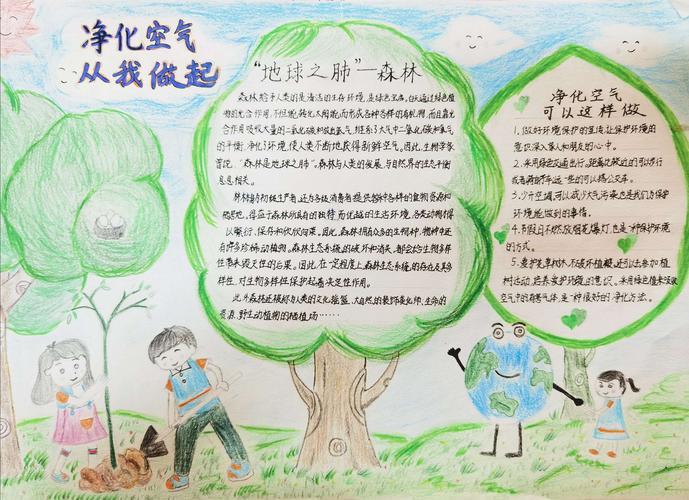 净化空气
从我做起
"地球之肺"—森林
森林给予人类的是清洁的生存环境,是绿色宝库,
的光合作用,不但能转化太阳能而形成各种各样的有机物,而且靠光
合作用吸收大量的二氧化碳和放出氧气,维系了大气中二氧化碳和氧气
的平衡,净化了环境,使人类不断地获得新鲜空气。因此,生物学家
曾说,"森林是地球之肺"。森林与人类的发展,与自然界的生态平衡
息息相关。
森林为初级生产者,还为各级消费者提供着种各样的食物资源和
栖居地,得益于森林所具有的独特而优越的生态环境,各类动物得
以繁衍,保存和欣欣向荣。因此,森林拥有众多的生物种,植物中还
有许多珍稀动植物。森林生态系统的破坏和消失,都会给生物多样
性带来毁灭性的后果。因此,在一定程度上,森林生态系统的存在及其多
样性,对生物多样性保护起着决定性作用。
此外森林还被称为人类的文化摇篮、大自然的装饰美化师、生命的
资源、野生动植物的栖植场……
净化空气
可以这样做
1.做好环境保护的宣传,让保护环境的
意识深入家人和朋友的心中。
2.采用绿色交通出行。距离比较近的可以步行
或者骑自行车,远一些的可以搭公交车。
3.少开空调,可以减少大气污染也是我们为保护
环境能做到的事情。
4.节假日不燃放烟花爆灯也是一种保护环境
的方式。
5.要爱护花草树木,不破坏植被,还可以去参加植
树活动,培养爱护环境的意识。采用绿色植来吸收
空气中的有害气体,是一种很好的净化方法。